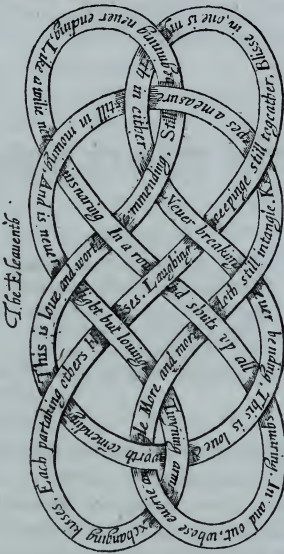 The Eleauenth.
This is loue and worth commending,
Still beginning neuer ending,
Like a wilie net insnaring,
In a round shuts vp all squaring,
In and out, whose euerie angle
More and more doth still intangle,
Keepes a measure still in mouing,
And is neuer light but louing,
Twining armes exchanging kisses,
Each partaking others blisses,
Laughing weepinge still togeather,
Blisse in one is mirth in either,
Neuer breaking euer bending,
This is loue & worth comending